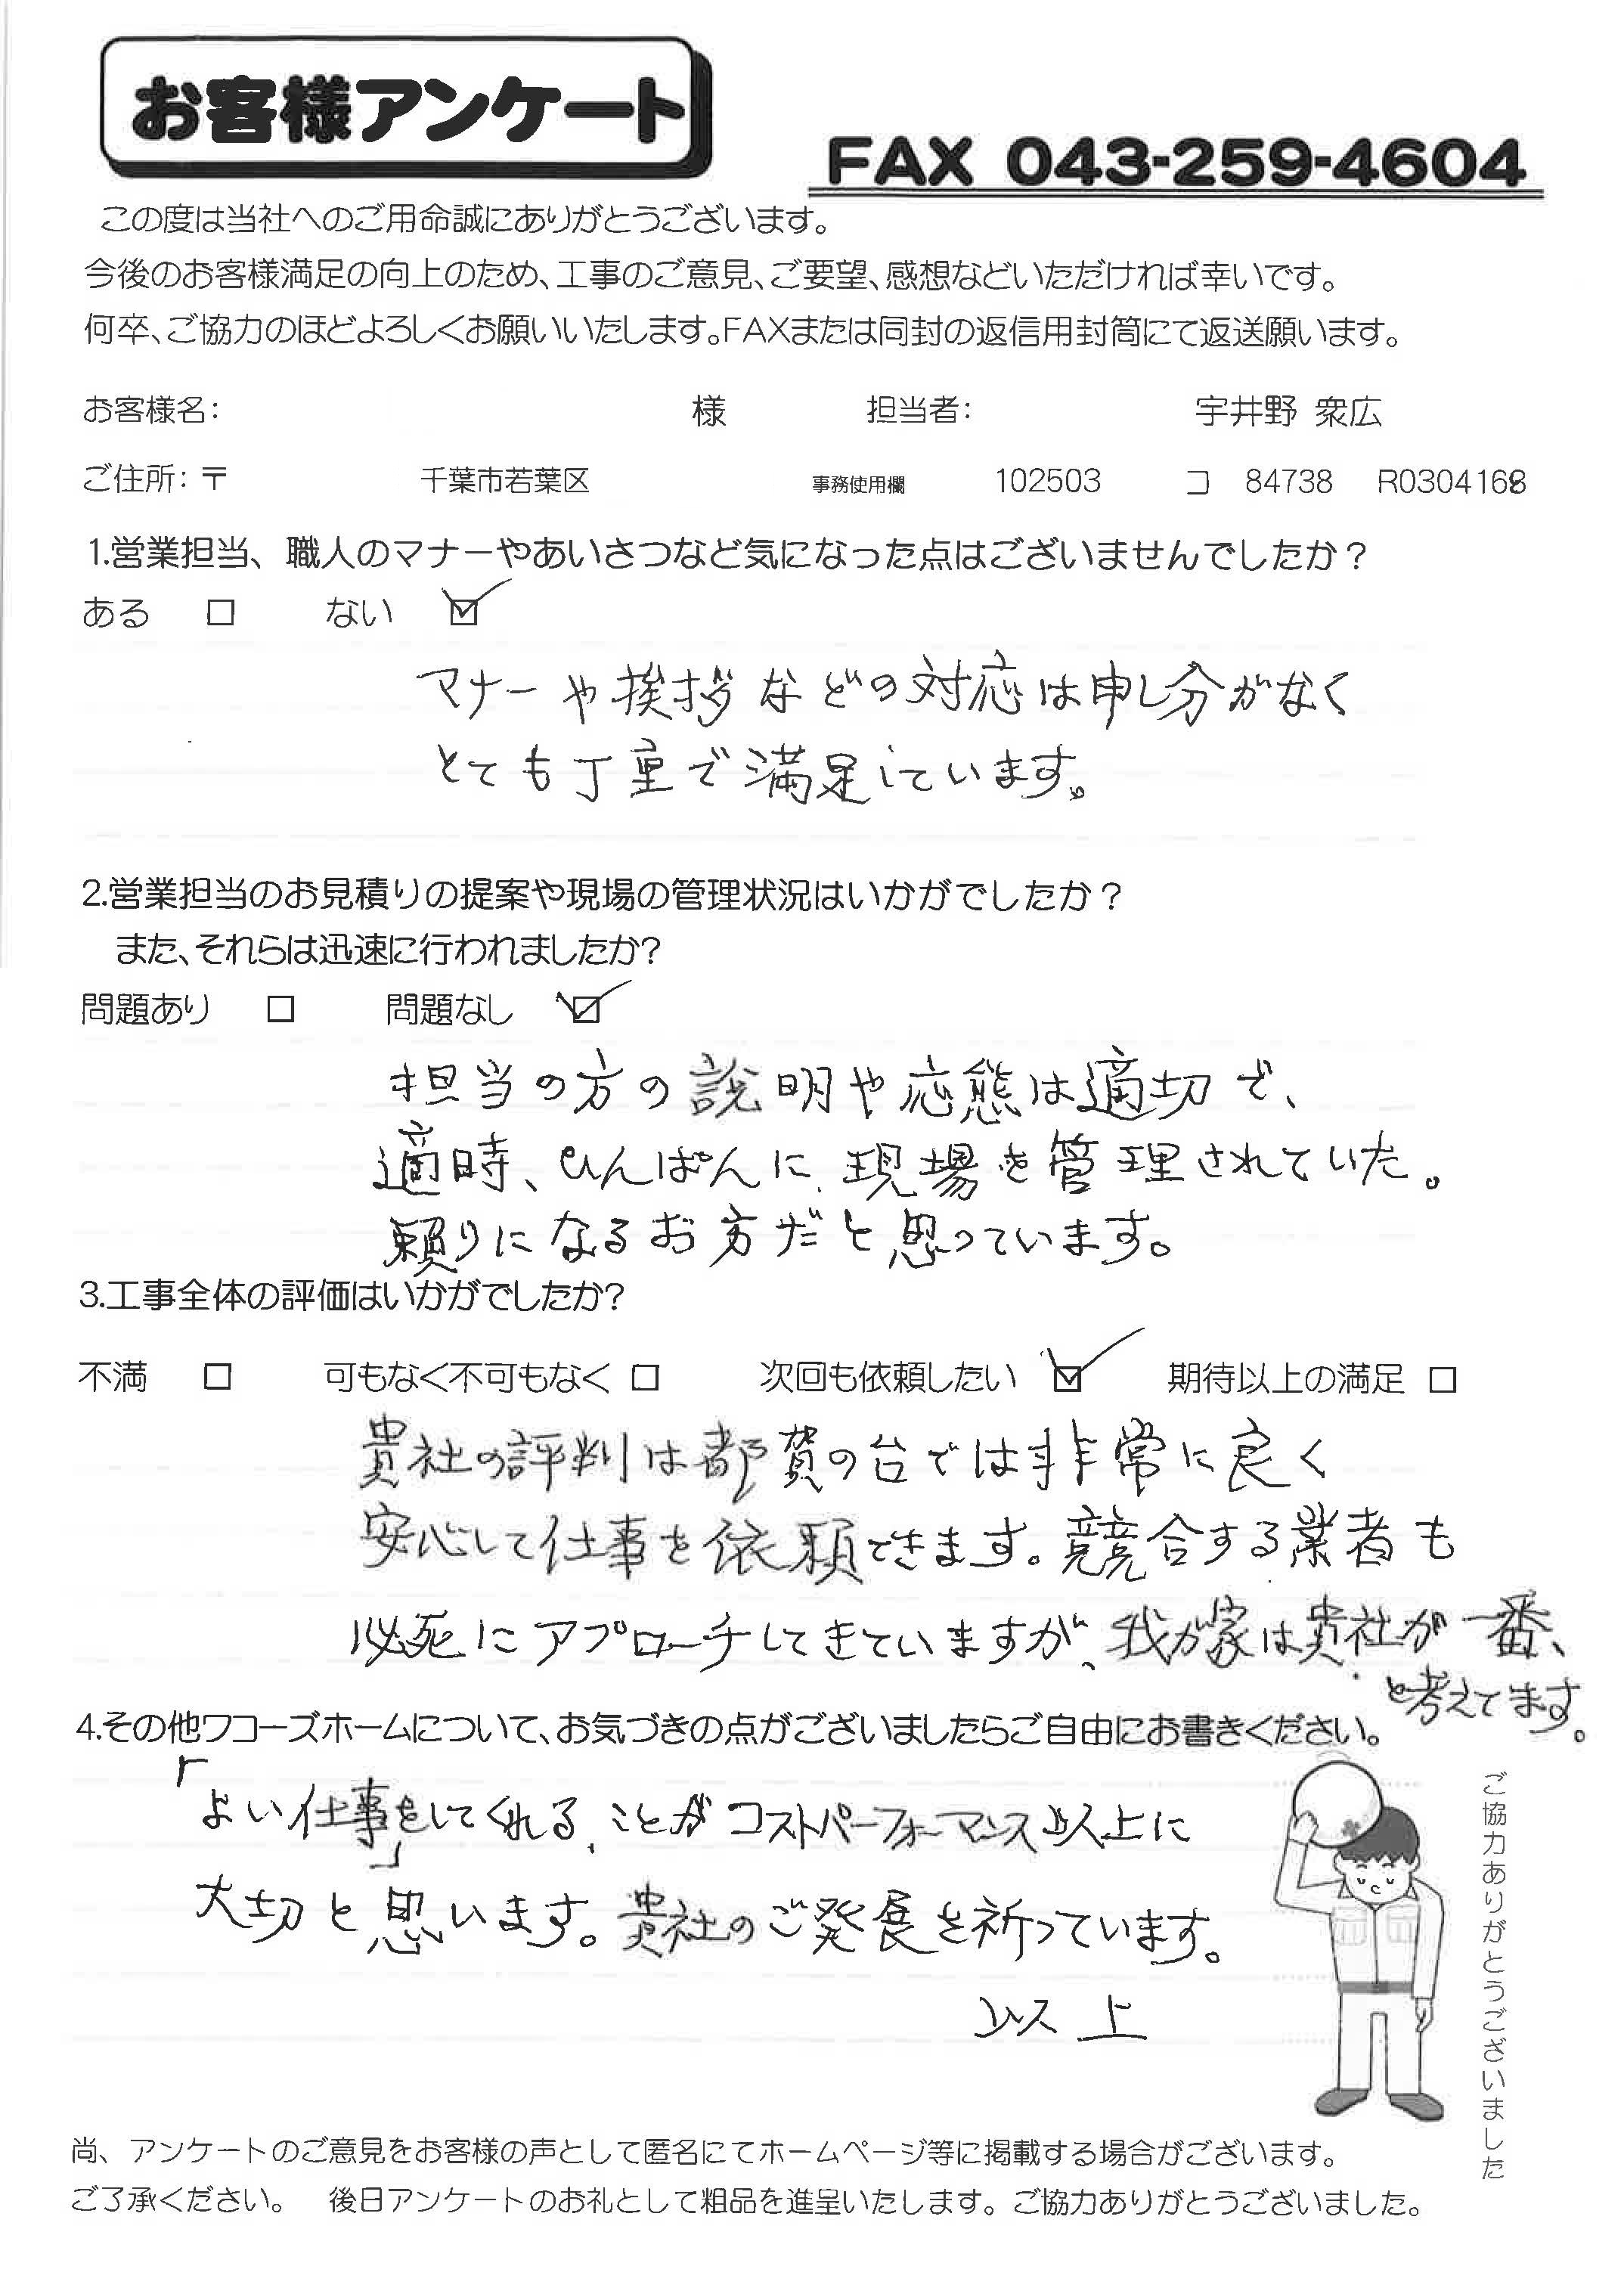 お客様アンケート
FAX 043-259-4604
この度は当社へのご用命誠にありがとうございます。
今後のお客様満足の向上のため、工事のご意見、ご要望、感想などいただければ幸いです。
何卒、ご協力のほどよろしくお願いいたします。FAXまたは同封の返信用封筒にて返送願います。
お客様名: 様 担当者: 宇井野 衆広
ご住所: 〒 千葉市若葉区 事務使用欄 102503 コ 84738 R0304168
1.営業担当、職人のマナーやあいさつなど気になった点はございませんでしたか？
ある □ ない ☑
マナーや挨拶などの対応は申し分がなく
とても丁重で満足しています。
2.営業担当のお見積りの提案や現場の管理状況はいかがでしたか？
また、それらは迅速に行われましたか?
問題あり □ 問題なし ☑
担当の方の説明や応態は適切で、
適時、ひんぱんに現場を管理されていた。
頼りになるお方だと思っています。
3.工事全体の評価はいかがでしたか?
不満 □ 可もなく不可もなく □ 次回も依頼したい ☑ 期待以上の満足 □
貴社の評判は都賀の台では非常に良く
安心して仕事を依頼できます。競合する業者も
必死にアプローチしてきていますが、我が家は貴社が一番、
と考えてます。
4.その他ワコーズホームについて、お気づきの点がございましたらご自由にお書きください。
「よい仕事」をしてくれる、ことがコストパーフォーマンス以上に
大切と思います。貴社のご発展を祈っています。
以上
ご協力ありがとうございました
尚、アンケートのご意見をお客様の声として匿名にてホームページ等に掲載する場合がございます。
ご了承ください。 後日アンケートのお礼として粗品を進呈いたします。ご協力ありがとうございました。